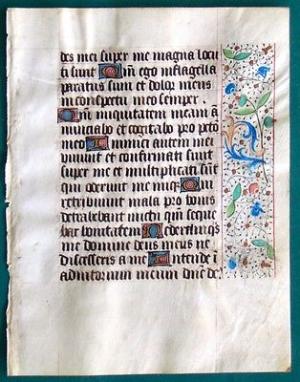 des mei super me magna locu
ti sunt Qm̄ ego in flagella
paratus sum et dolor meus
in conspectu meo semper.
Qm̄ iniquitatem meam ā
nunciabo et cogitabo pro pctō
meo Inimici autem mei
vivunt et confirmati sunt
super me et multiplicati sūt
qui oderunt me iniq̄ Qui
retribuunt mala pro bonis
detrahebant michi qm̄ seque
bar bonitatem Ne derelinqs
me domine deus meus ne
discesseris a me Intende ī
adiutorium meum dn̄e de⁹